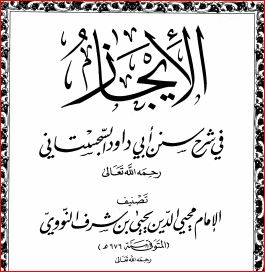 الإيجاز
في شرح سنن أبي داود السجستاني
رحمه الله تعالى
تصنيف
الإمام محيي الدين يحيى بن شرف النووي
(المتوفى سنة ٦٧٦هـ)
رحمه الله تعالى